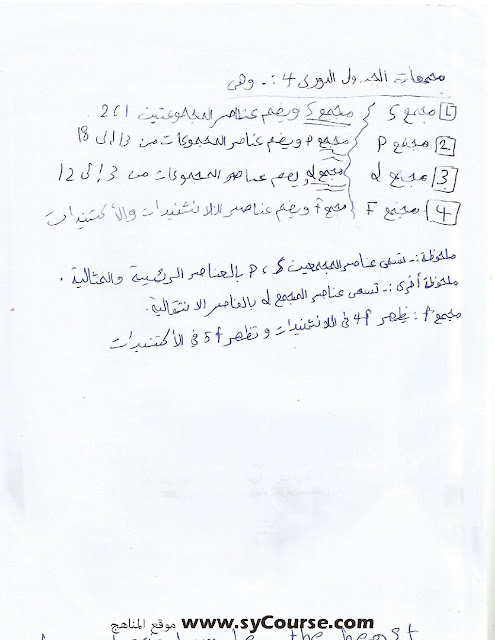 مجمعات الجدول الدوري 4 :- وهى
1 مجمع S } مجمع S ويضم عناصر المجموعتين 1 ، 2
2 مجمع P } مجمع P ويضم عناصر المجموعات من 13 إلى 18
3 مجمع d } مجمع d ويضم عناصر المجموعات من 3 إلى 12
4 مجمع F } مجمع f ويضم عناصر اللانثنيدات والأكتنيدات
ملحوظة :- تسمى عناصر المجمعين S ، P بالعناصر الرئيسية والمثالية .
ملحوظة أخرى :- تسمى عناصر المجمع d بالعناصر الانتقالية .
مجمع f : يظهر 4f فى اللانثنيدات وتظهر 5f فى الأكتنيدات
www.syCourse.com موقع المناهج